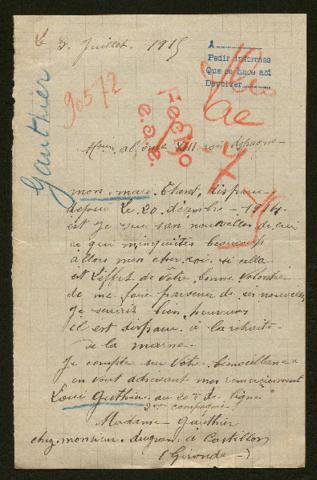 le 3 Juillet 1915
A
Pedir informes
Que se hace así
Devolver
90572
Gauthier
Fecho
e.d.e.
Mon alfonse XIII roi despagne
mon mari étant disparu
depuis le 20 décembre 1914
est Je suis san nouvelles de lui
ce qui m'inquiètes beaucoup
allors mon cher roi si cella
est l'effet de votre bonne volontée
de me faire parvenir de ces nouvelles
Je serais bien heureuse
il est disparu à la retraite
de la marne
Je compte sur votre bienveillance
en vous adressant mes remerciements
Louis Gauthier au 20 de ligne
compagnie
Madame Gauthier
chez monsieur dugran à Castillon
(Gironde)